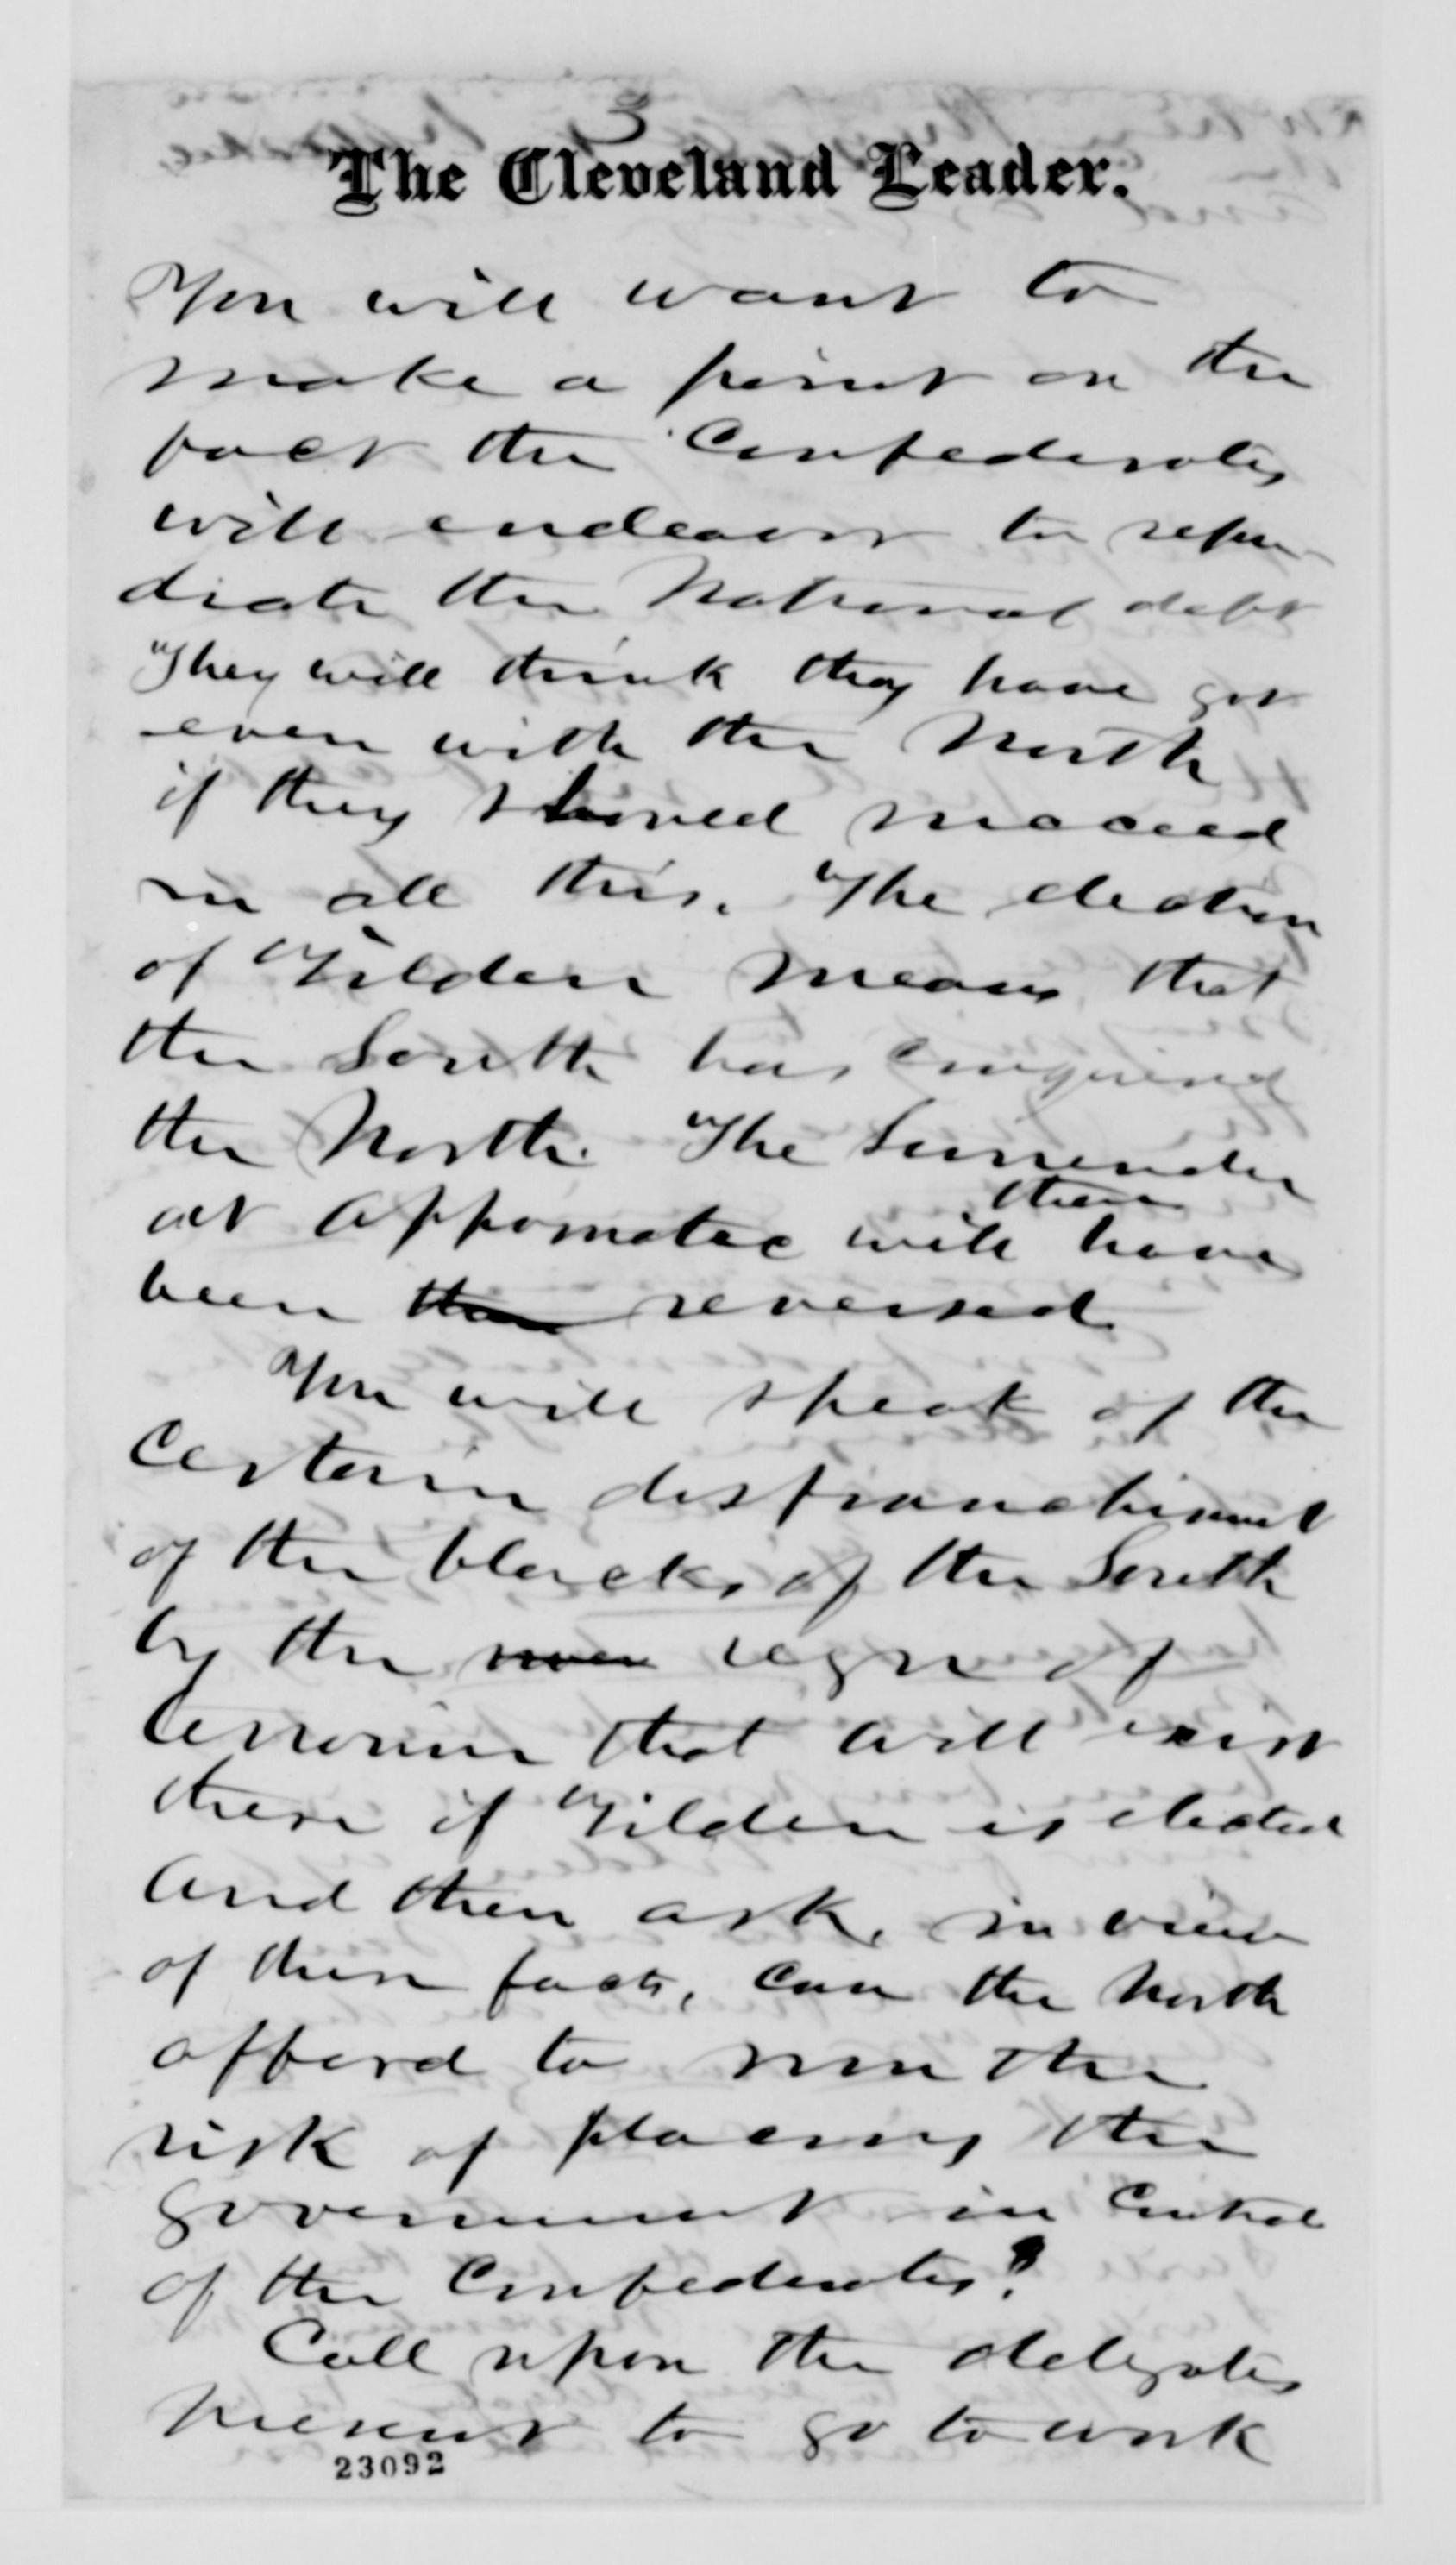 3
The Cleveland Leader.
You will want to
make a point on the
fact the Confederates
will endeavor to repu
diate the National debt
They will think they have got
even with the North
if they should succeed
in all this. The election
of Tilden means that
the South has conquered
the North. The Surrender
then
at Appomatox will have
been reversed
You will speak of the
certain disfranchisment
of the blacks of the South
by the reign of
terrorism that will exist
there if Tilden is elected
and then ask, in view
of these facts, can the North
afford to run the
risk of placing the
government in control
of the Confederates?
Call upon the delegates
present to go to work
23092